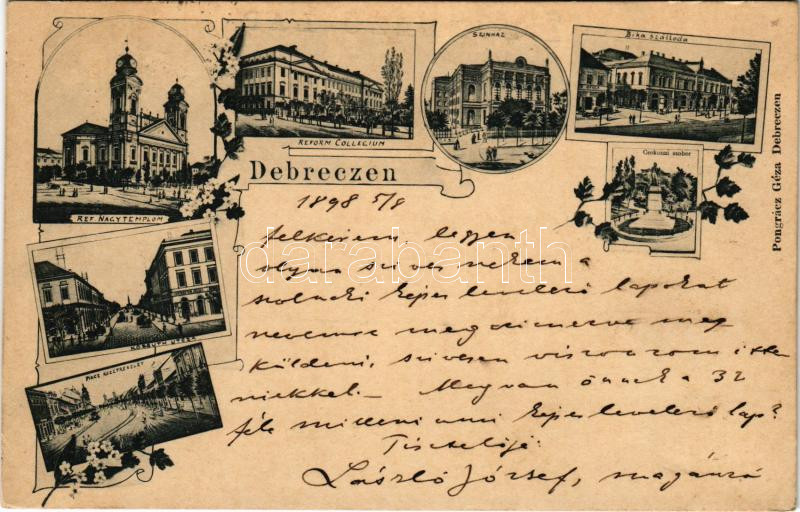 SZINHÁZ
Bika szálloda
REFORM COLLEGIUM
Debreczen
Csokonai szobor
REF. NAGYTEMPLOM
PIACZ UTCZA RÉSZLET
Pongrácz Géza Debreczen
1898 5/8
Felkérem legyen
olyan szives nekem a
szolnoki képes levelező lapokat
nevemre megczimezve meg
küldeni, szivesen viszonzom itte
niekkel. – Megvan önnek a 32
féle millenniumi képes levelező lap?
Tisztelője
László József, magánzó
darabanth